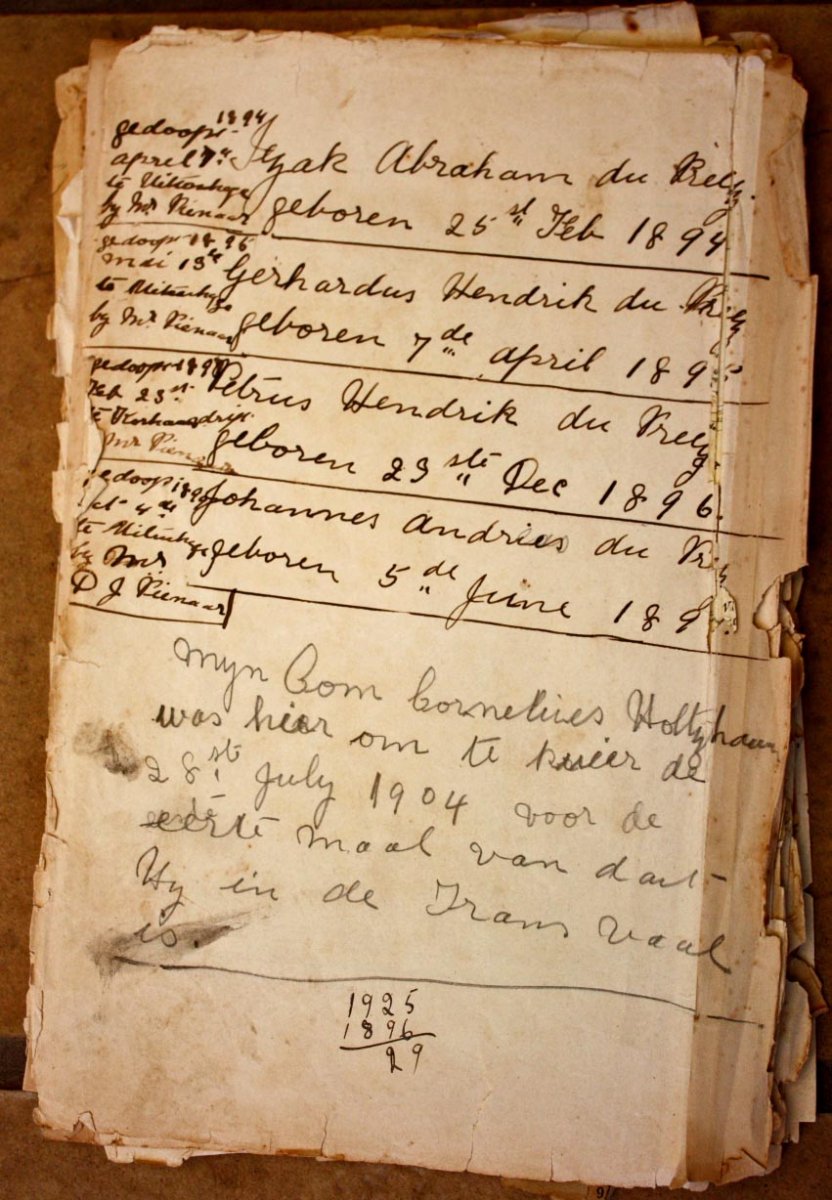 gedoopt 1894
april 7de
te Uitenhage
by Mr Pienaar
Izak Abraham du Preez.
geboren 25st Feb 1894
gedoopt 1895
mai 13de
te Uitenhage
by Mr Pienaar
Gerhardus Hendrik du Preez
geboren 7de april 189
gedoopt 1897
Feb 23st
te
Mr Pienaar
Petrus Hendrik du Preez
geboren 23ste Dec 1896.
gedoopt
4de
te Uitenhage
by Mr
D J Pienaar
Johannes Andries du
geboren 5de June 189
Myn Oom Cornelius Holtzhausen
was hier om te kuier de
28st July 1904 voor de
eerste maal van dart
Hy in de Trans Vaal
is.
1925
1896
29